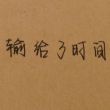 输给了时间